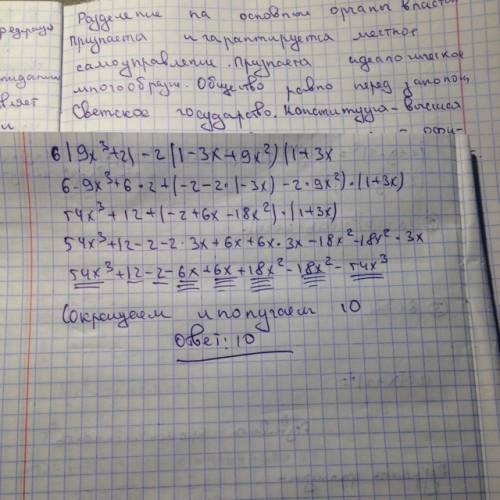 Разделение на основном органы власти
Признается и гарантируется местное
самоуправление. Признается идеологическое
многообразие. Общество равно перед законом,
Светское государство. Конституция – высшая
вляет
6(9x³+2)-2(1-3x+9x²)(1+3x
6·9x³+6·2+(-2-2·(-3x)-2·9x²)·(1+3x)
54x³+12+(-2+6x-18x²)·(1+3x)
54x³+12-2-2·3x+6x+6x·3x-18x²-18x²·3x
54x³+12-2-6x+6x+18x²-18x²-54x³
Сокращаем и получаем 10
Ответ: 10